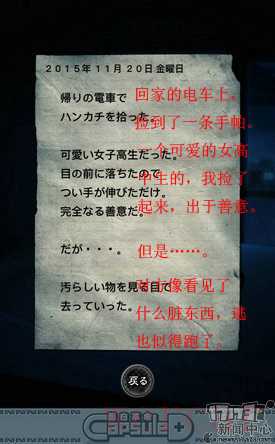 2015年11月20日金曜日
帰りの電車で
ハンカチを拾った。
可愛い女子高生だった。
目の前に落ちたので
つい手が伸びただけ。
完全なる善意だ。
だが・・・。
汚らしい物を見る目で
去っていった。
回家的电车上。
捡到了一条手帕。
一个可爱的女高
中生的，我捡了
起来，出于善意。
但是……。
什么脏东西，逃
也似得跑了。
戻る
Capsule+
17173
新闻中心